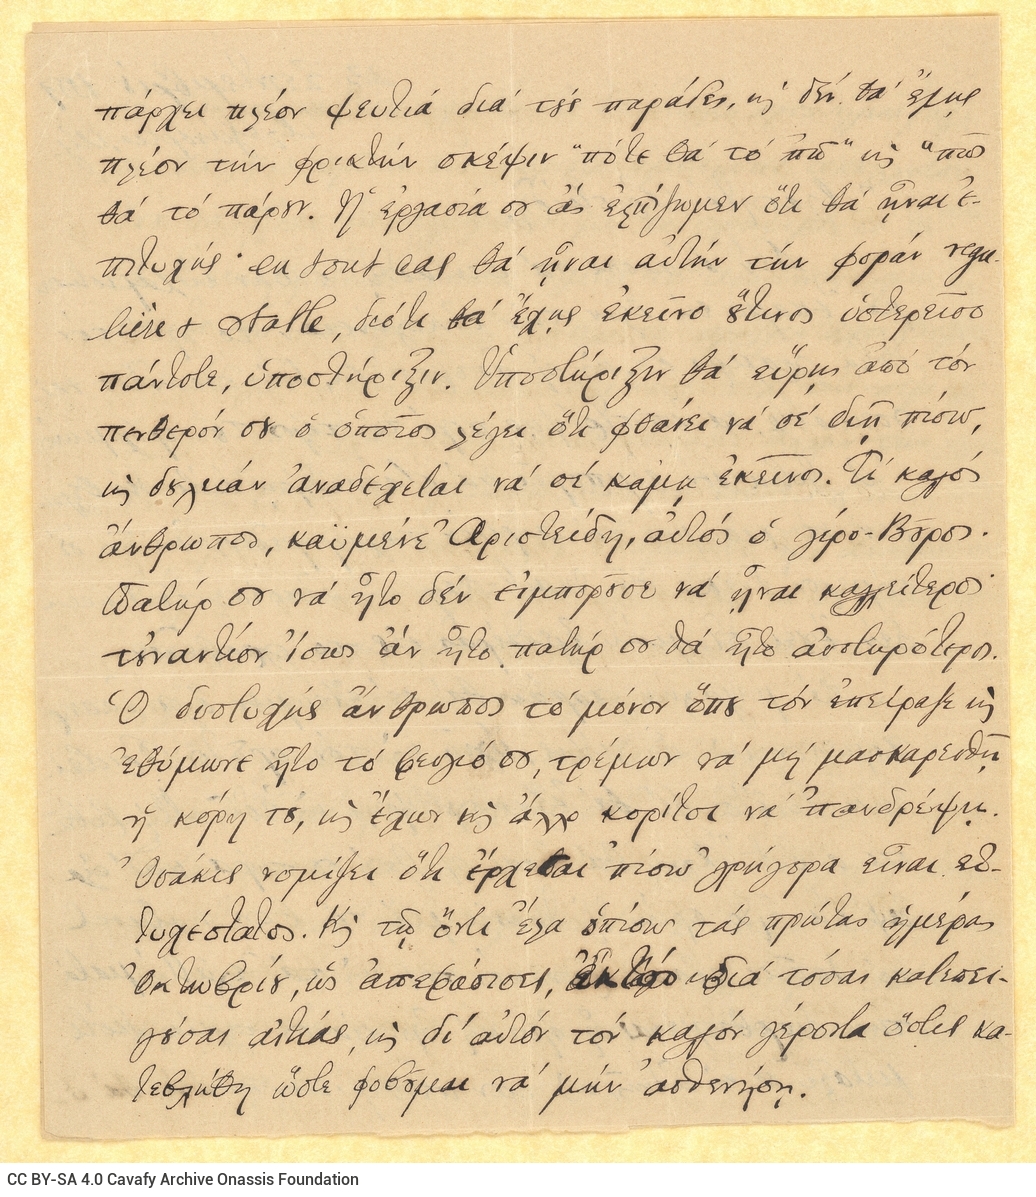 πάρχει πλέον ψευτιά διά τες παράδες, κ' δέν θά ἔχῃς
πλέον τήν φρικτήν σκέψιν "πότε θά τό πῶ" κ' "πῶς
θά τό πάρουν. Ἡ ἐργασία σου ἄς ἐλπίζωμεν ὅτι θά ᾖναι ἐ-
πιτυχής· en tout cas θά ᾖναι αὐτήν τήν φοράν regu-
lière & stable, διότι θά ἔχῃς ἐκεῖνο οὕτινος ὑστερεῖσο
πάντοτε, ὑποστήριξιν. Ὑποστήριξιν θά εὕρῃς ἀπό τόν
πενθερόν σου ὁ ὁποῖος λέγει ὅτι φθάνει νά σέ διῇ πίσω,
κ' δουλειάν ἀναδέχεται νά σέ κάμῃ ἐκεῖνος. Τί καλός
ἄνθρωπος, καϋμένε Ἀριστείδη, αὐτός ὁ γέρο-Βοῦρος.
Πατήρ σου νά ἦτο δέν εἰμποροῦσε νά ᾖναι καλλείτερος·
τοὐναντίον ἴσως ἄν ἦτο πατήρ σου θά ἦτο αὐστηρότερος.
Ὁ δυστυχής ἄνθρωπος τό μόνον ὅπου τόν ἐπείραζε κ'
ἐθύμωνε ἦτο τό φευγιό σου, τρέμων νά μή μασκαρευθῇ
ἡ κόρη του, κ' ἔχων κ' ἄλλο κορίτσι νά 'πανδρέψῃ.
Ὁσάκις νομίζει ὅτι ἔρχεσαι 'πίσω γρήγορα εἶναι εὐ-
τυχέστατος. Κ' τῷ ὄντι ἔλα ὀπίσω τάς πρώτας ἡμέρας
Ὀκτωβρίου, ὡς ἀπεφάσισες, κ' διά τόσας κατεπει-
γούσας αἰτίας, κ' δι' αὐτόν τόν καλόν γέροντα ὅστις κα-
τεβλήθη ὥστε φοβοῦμαι νά μήν ἀσθενήσῃ.
CC BY-SA 4.0 Cavafy Archive Onassis Foundation